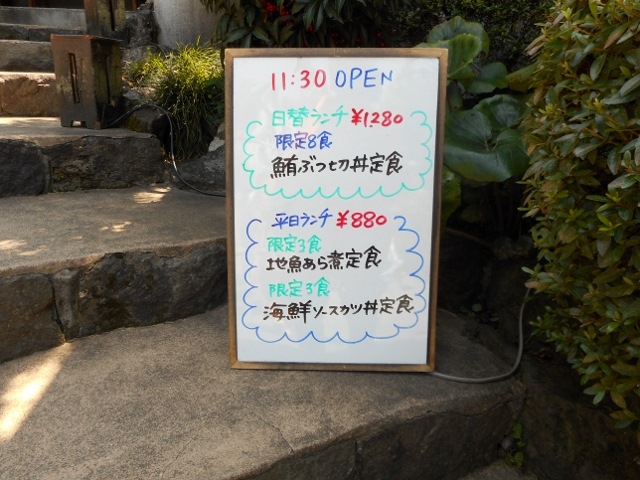 11:30 OPEN
日替ランチ ¥1,280
限定8食
鮪ぶつ切丼定食
平日ランチ ¥880
限定3食
地魚あら煮定食
限定3食
海鮮ソースカツ丼定食